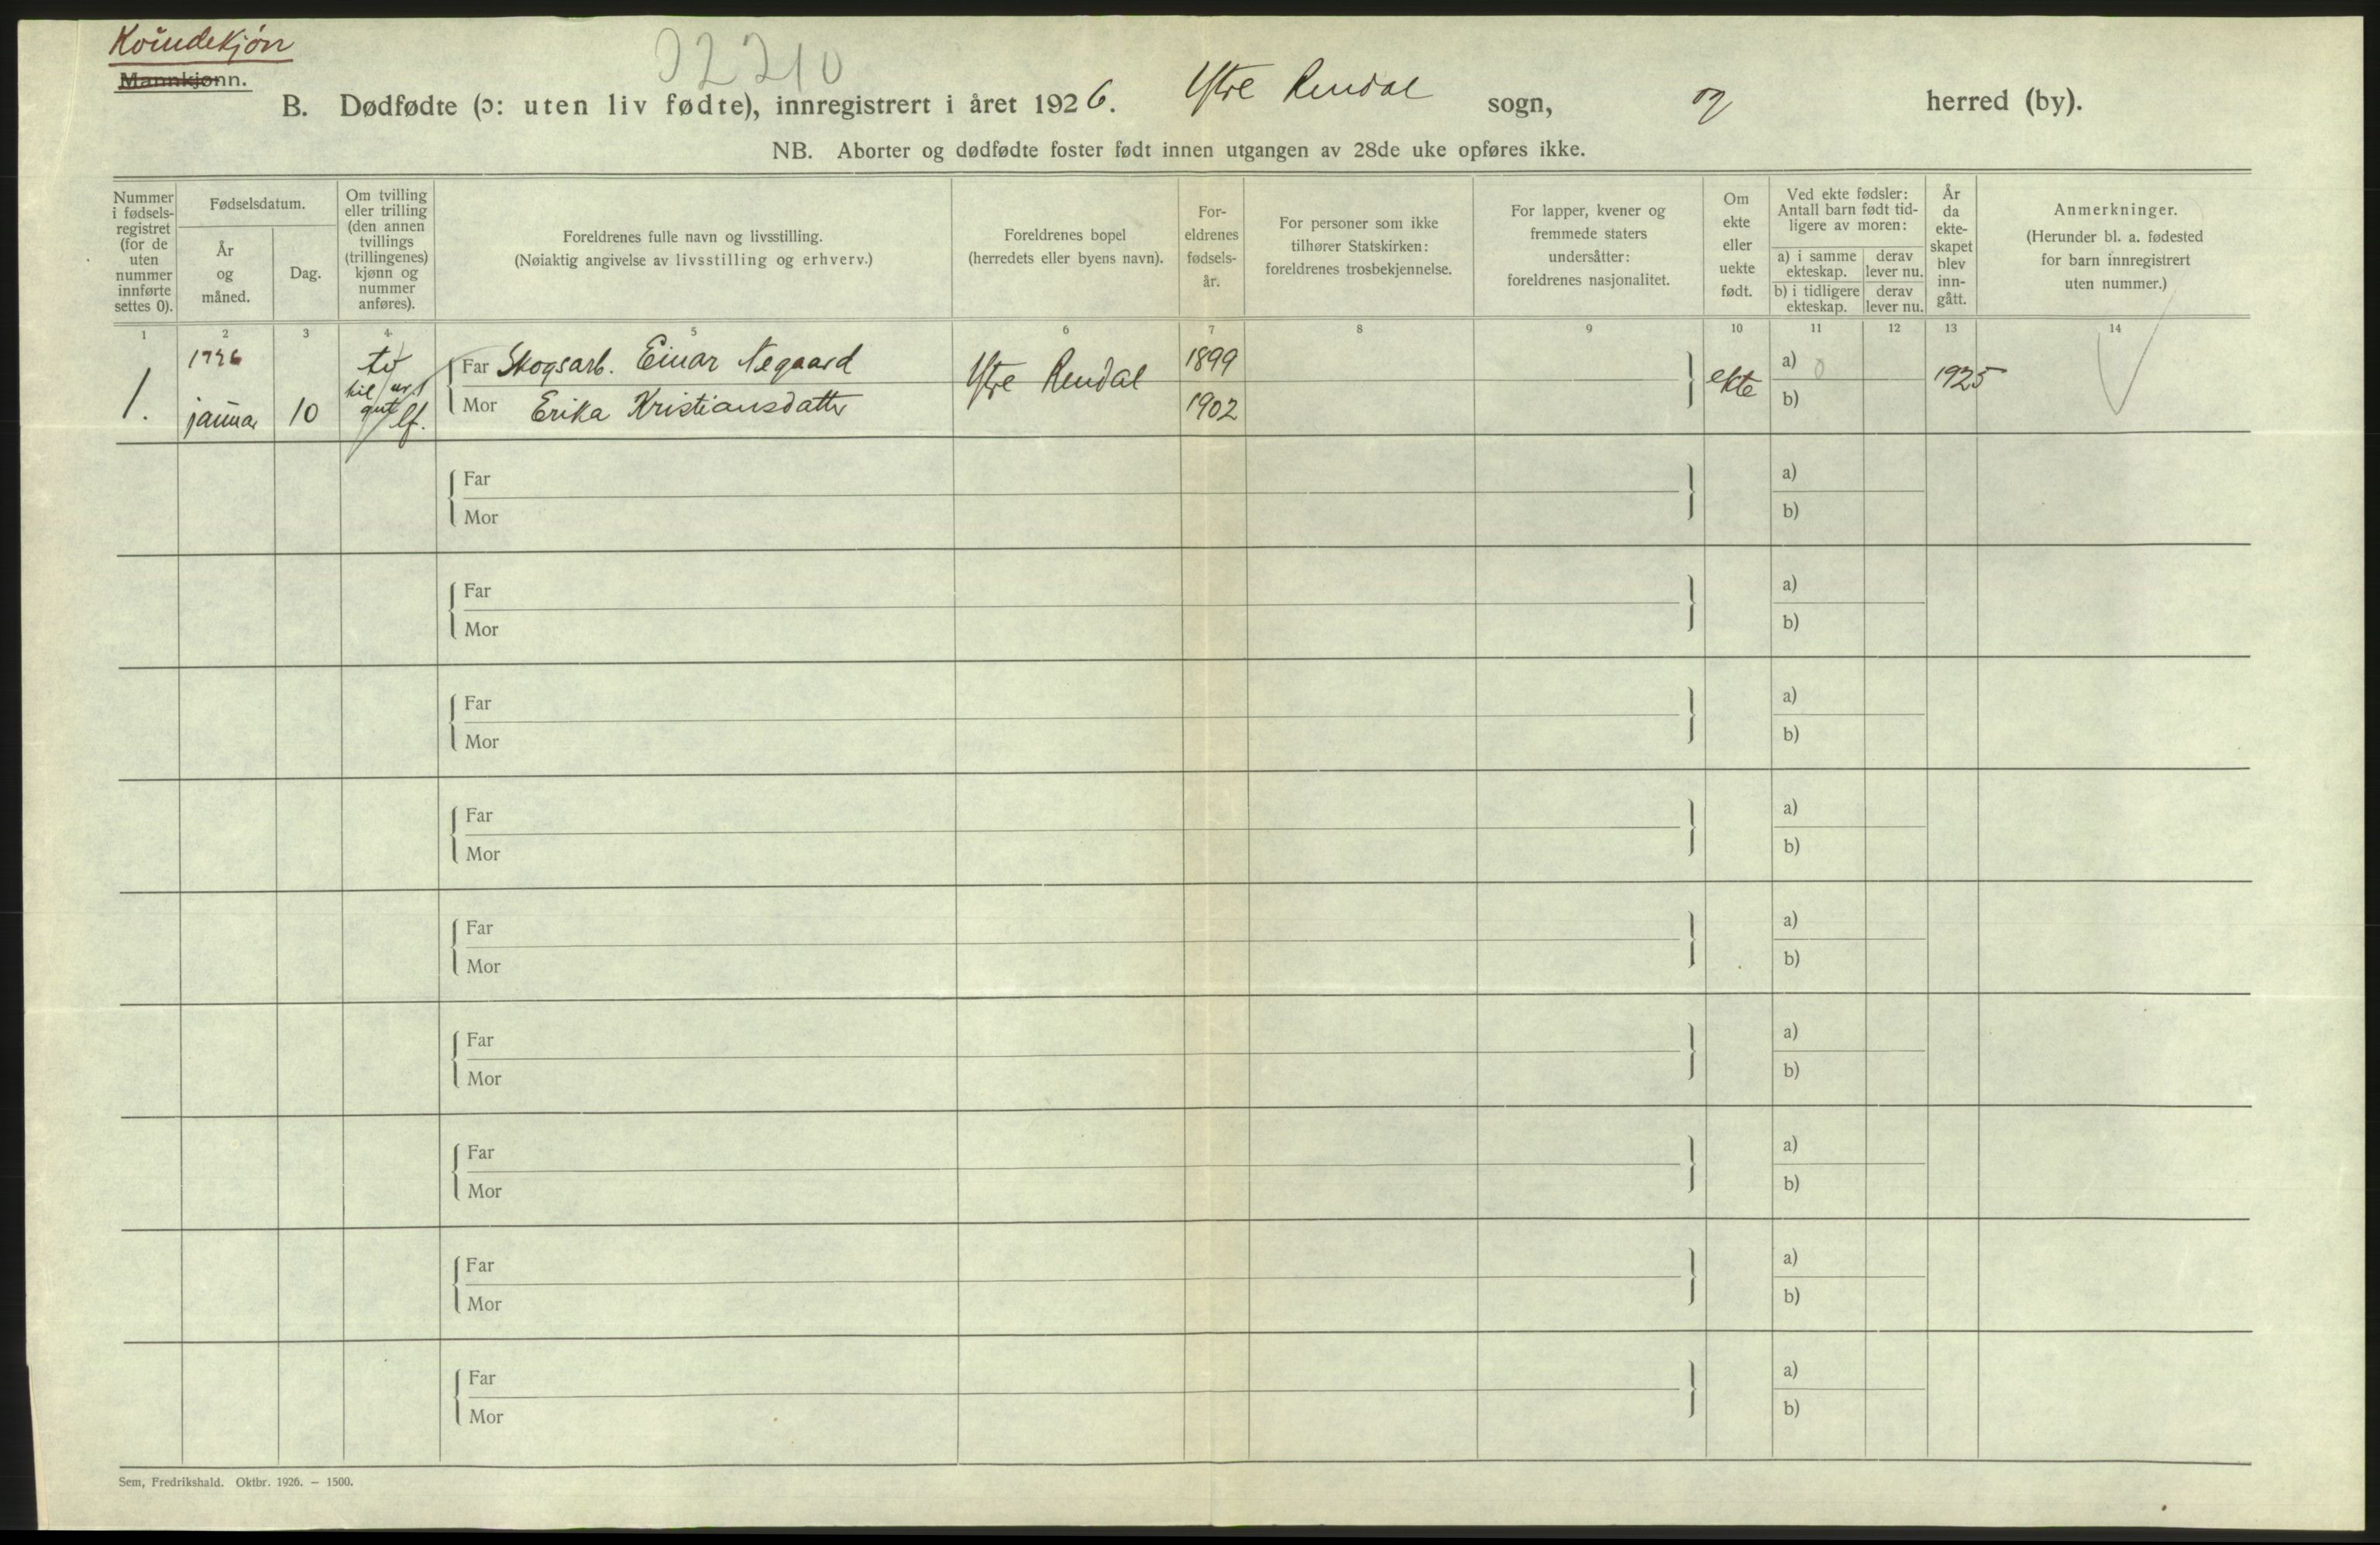 Kvindekjøn
Mannkjønn.
02210
B. Dødfødte (ɔ: uten liv fødte), innregistrert i året 1926. Ytre Rendal sogn, og herred (by).
NB. Aborter og dødfødte foster født innen utgangen av 28de uke opføres ikke.
Nummer
i fødsels-
registret
(for de
uten
nummer
innførte
settes 0).
Fødselsdatum.
År
og
måned.
Dag.
Om tvilling
eller trilling
(den annen
tvillings
(trillingenes)
kjønn og
nummer
anføres).
Foreldrenes fulle navn og livsstilling.
(Nøiaktig angivelse av livsstilling og erhverv.)
Foreldrenes bopel
(herredets eller byens navn).
For-
eldrenes
fødsels-
år.
For personer som ikke
tilhører Statskirken:
foreldrenes trosbekjennelse.
For lapper, kvener og
fremmede staters
undersåtter:
foreldrenes nasjonalitet.
Om
ekte
eller
uekte
født.
Ved ekte fødsler:
Antall barn født tid-
ligere av moren:
a) i samme
ekteskap.
derav
lever nu.
b) i tidligere
ekteskap.
derav
lever nu.
År
da
ekte-
skapet
blev
inn-
gått.
Anmerkninger.
(Herunder bl. a. fødested
for barn innregistrert
uten nummer.)
1 2 3 4 5 6 7 8 9 10 11 12 13 14
1.
1926
januar
10
tv
til nr 1
gut lf.
Far Skogsarb. Einar Negaard
Mor Erika Kristiansdatter
Ytre Rendal
1899
1902
ekte
a) 0
b)
1925
Far
Mor
a)
b)
Far
Mor
a)
b)
Far
Mor
a)
b)
Far
Mor
a)
b)
Far
Mor
a)
b)
Far
Mor
a)
b)
Far
Mor
a)
b)
Far
Mor
a)
b)
Far
Mor
a)
b)
Sem, Fredrikshald. Oktbr. 1926. — 1500.